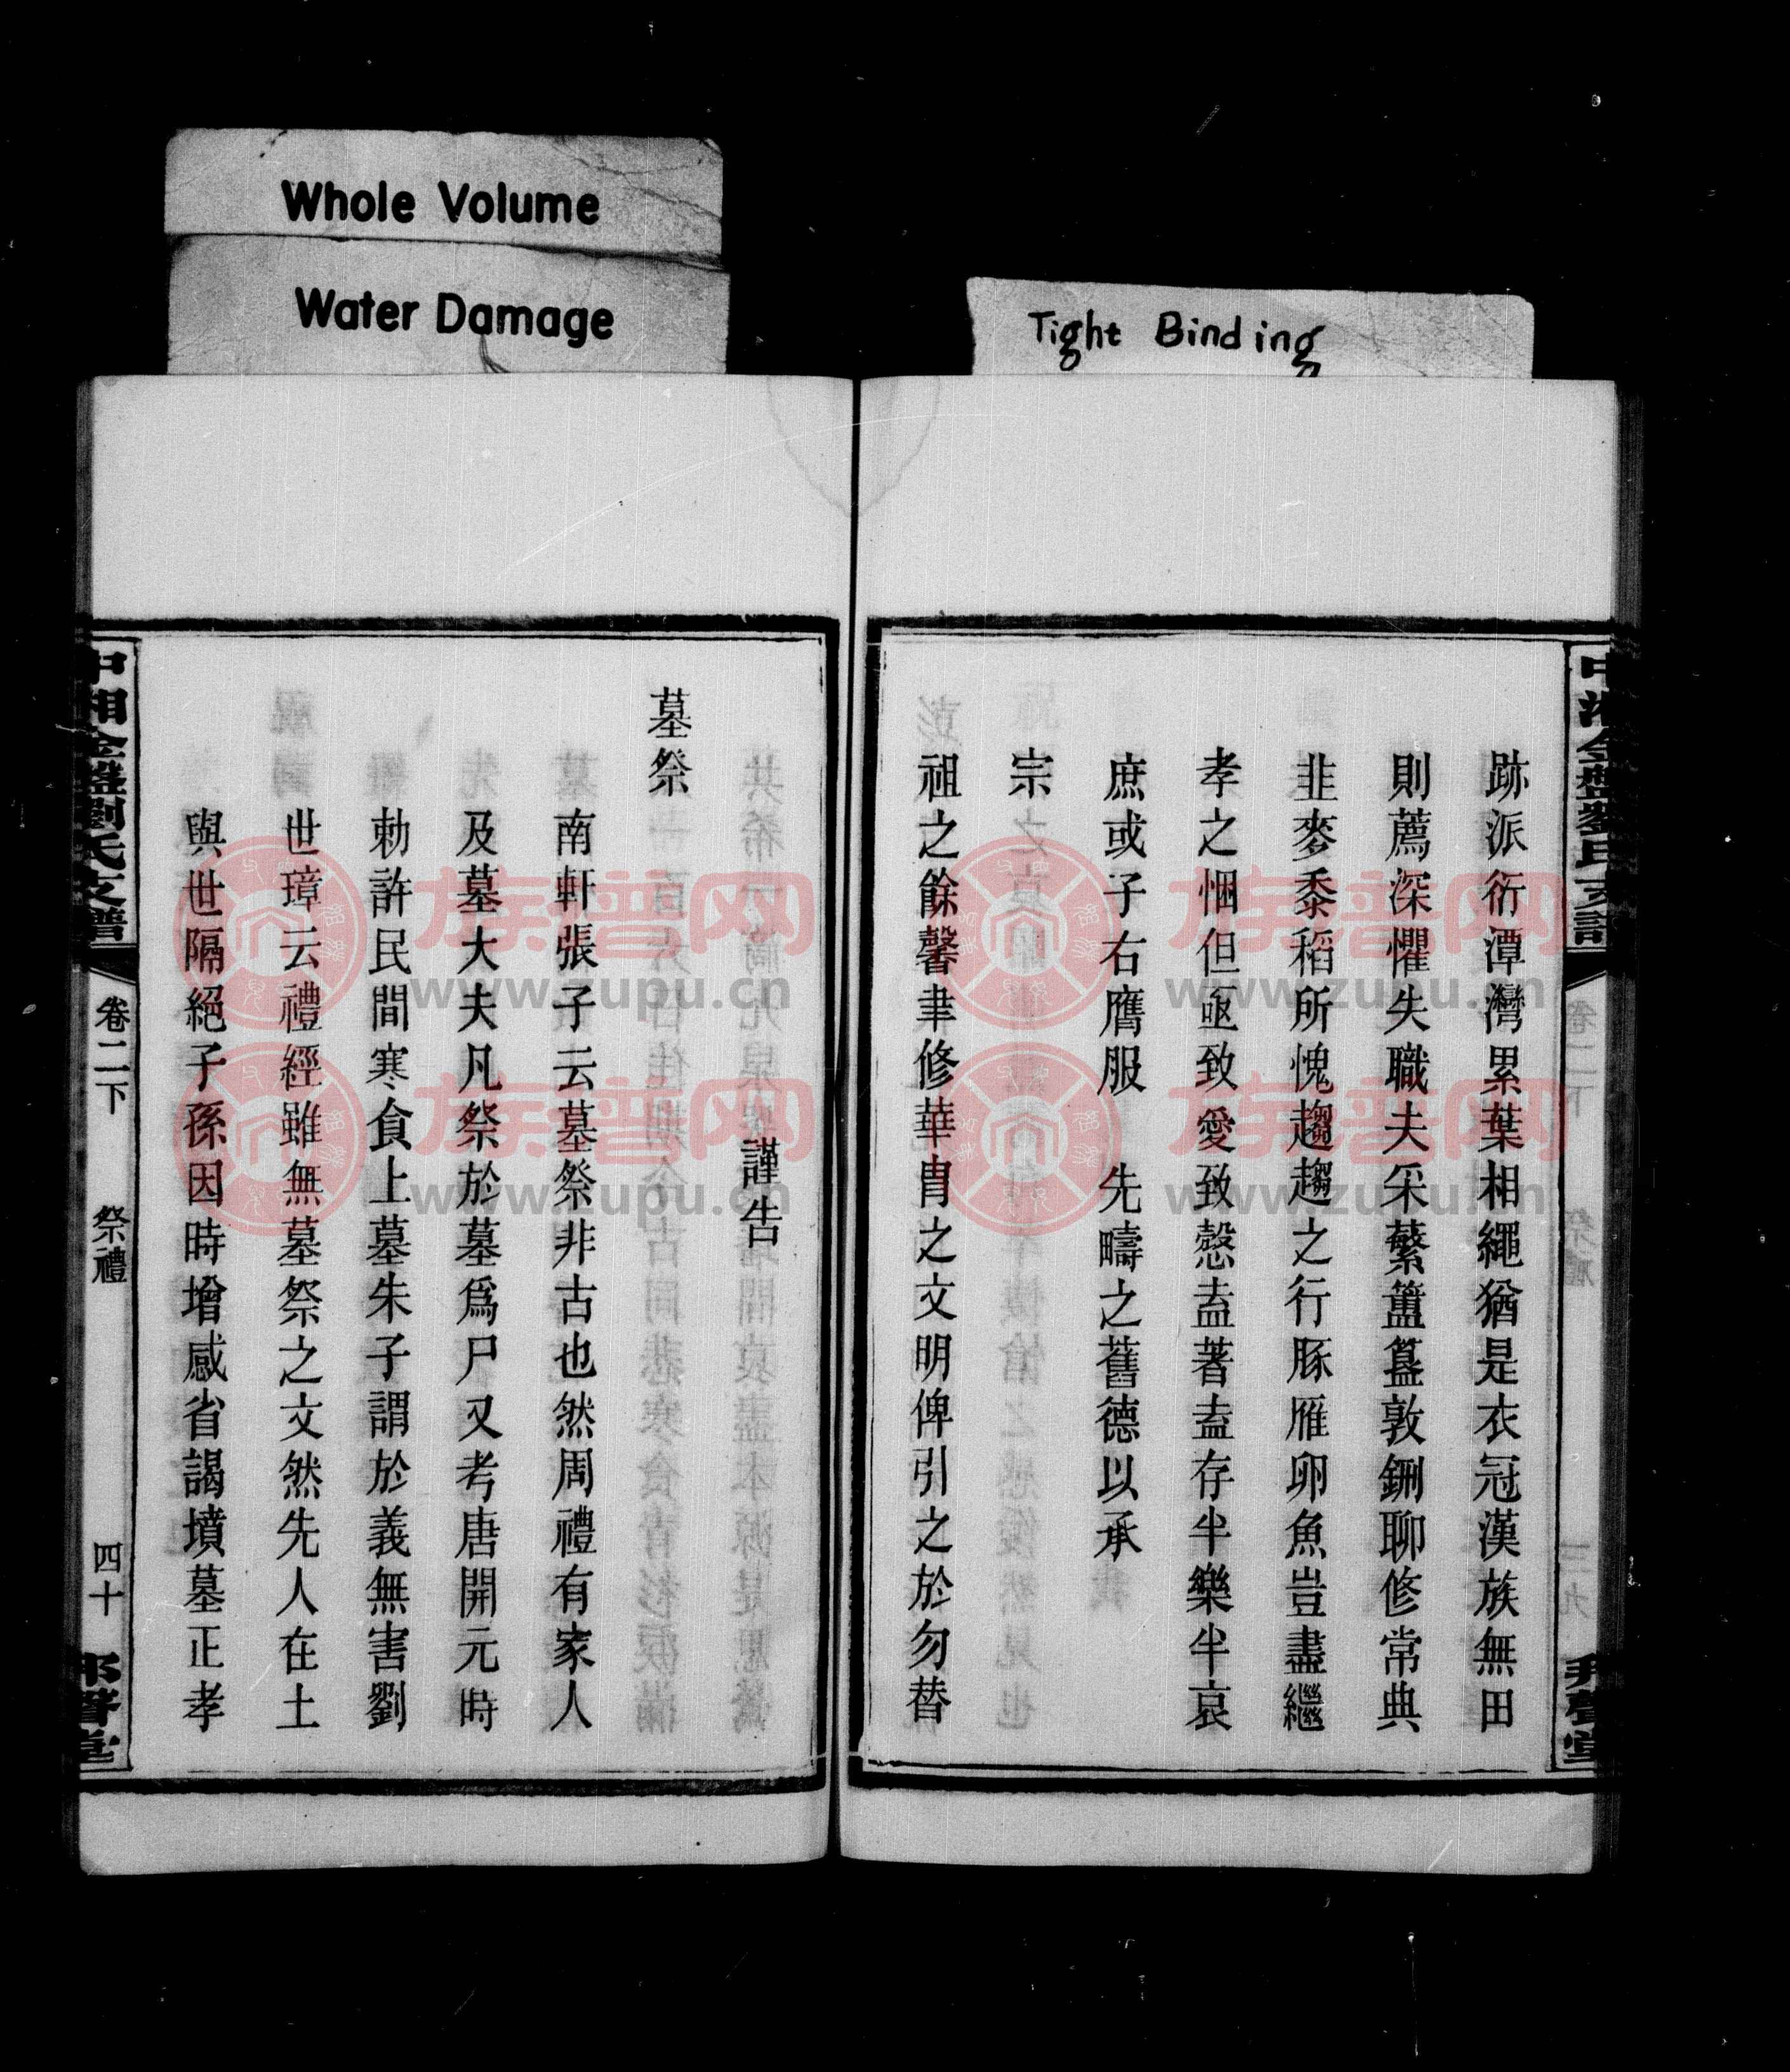 Whole Volume
Water Damage
Tight Binding
跡派衍潭灣累葉相繩猶是衣冠漢族無田
則薦深懼失職夫采蘩簠簋敦鉶聊修常典
韭麥黍稻所愧趨趨之行豚雁卵魚豈盡繼
孝之悃但亟致愛致慤盍著盍存半樂半哀
庶或子右膺服 先疇之舊德以承
宗
祖之餘馨聿修華胄之文明俾引之於勿替
謹告
墓祭
南軒張子云墓祭非古也然周禮有家人
及墓大夫凡祭於墓爲尸又考唐開元時
勅許民間寒食上墓朱子謂於義無害劉
世璋云禮經雖無墓祭之文然先人在土
與世隔絕子孫因時增感省謁墳墓正孝
中湘金盤劉氏支譜
卷二下
祭禮
四十
族譜网
www.zupu.cn
族譜网
www.zupu.cn
族譜网
www.zupu.cn
族譜网
www.zupu.cn